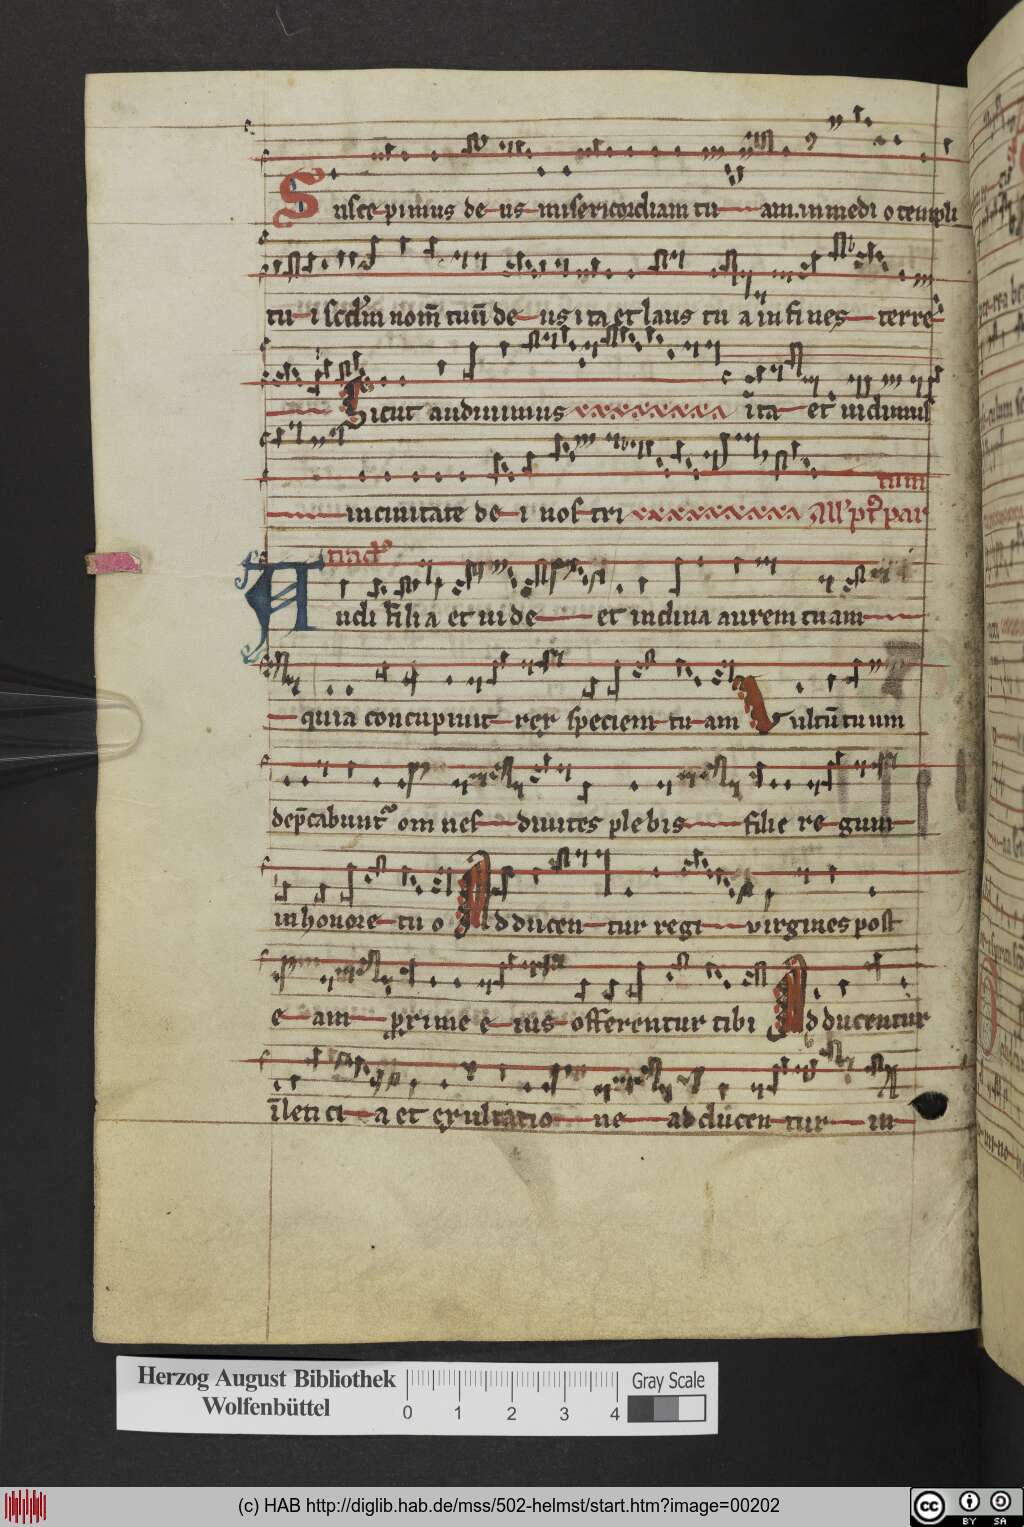 Suscepimus de us misericordiam tu am. in medi o templi
tu i scdm nom̄ tuū de us ita et laus tu a in fi nes terre
Sicut audiuimus ita et uidimus
in ciuitate de i nos tri All' ptr̄ par
tum
tract'
Audi filia et ui de et inclina aurem tuam
quia concupiuit rex speciem tu am Vultū tu um
dep̄cabunt' om nes diuites ple bis filie re gum
in honore tu o Adducen tur regi virgines post
e am proxime e ius offerentur tibi Adducentur
ī leti ci a et exultatio ne adducen tur in
Herzog August Bibliothek
Wolfenbüttel
0 1 2 3 4
Gray Scale
(c) HAB http://diglib.hab.de/mss/502-helmst/start.htm?image=00202
cc BY SA